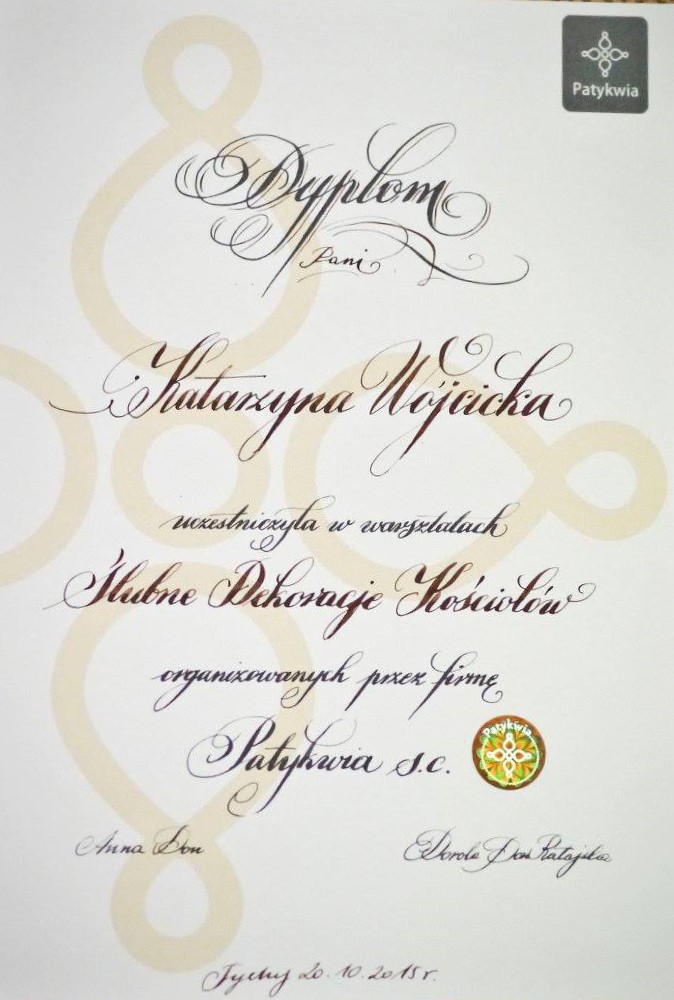 Patykwia
Dyplom
Pani
Katarzyna Wójcicka
uczestniczyła w warsztatach
Ślubne Dekoracje Kościołów
organizowanych przez firmę
Patykwia s.c.
Patykwia
Anna Don
Dorota Ratajska
Tychy 20.10.2015 r.